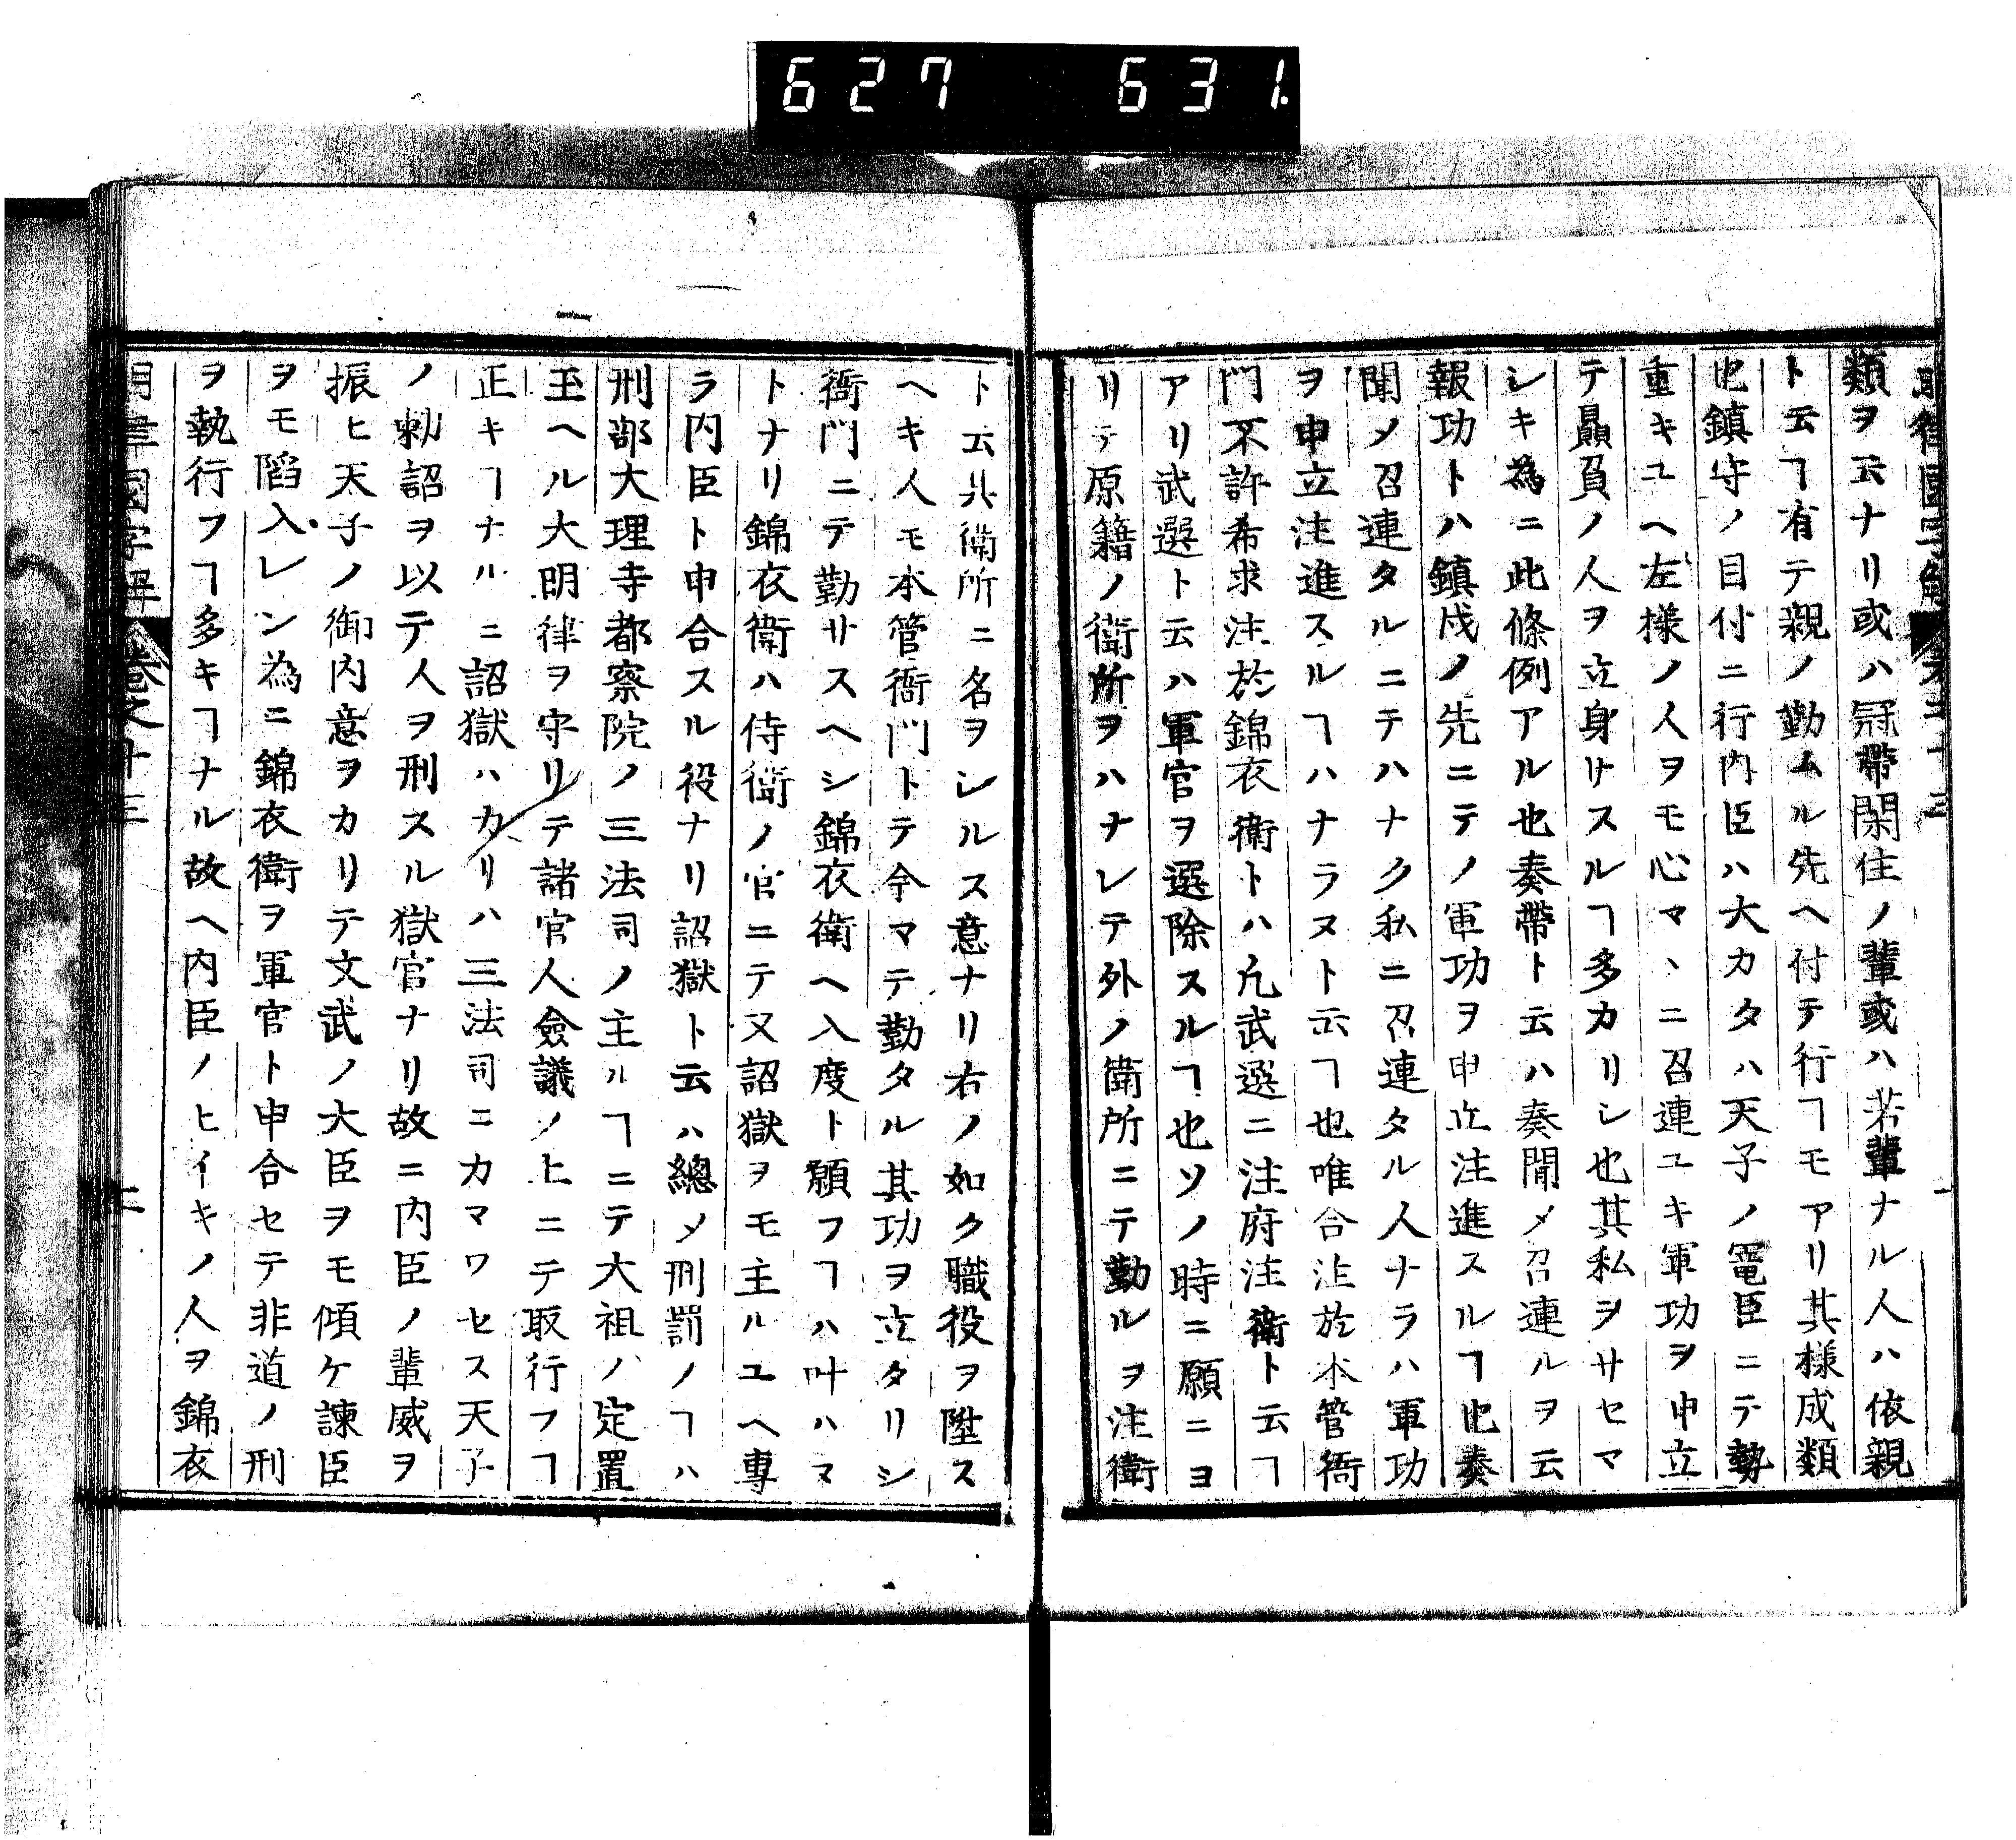 627 631.
類ヲ云ナリ或ハ冠帶閑住ノ輩或ハ若輩ナル人ハ依親
ト云ヿ有テ親ノ勤ムル先ヘ付テ行ヿモアリ其様成類
也鎮守ノ目付ニ行内臣ハ大カタハ天子ノ寵臣ニテ勢
重キユヘ左様ノ人ヲモ心マヽニ召連ユキ軍功ヲ申立
テ贔負ノ人ヲ立身サスルヿ多カリシ也其私ヲサセマ
シキ為ニ此條例アル也奏帶ト云ハ奏聞メ召連ルヲ云
報功トハ鎮戍ノ先ニテノ軍功ヲ申立注進スルヿ也奏
聞メ召連タルニテハナク私ニ召連タル人ナラハ軍功
ヲ申立注進スルヿハナラヌト云ヿ也唯合注於本管衙
門不許希求注於錦衣衛トハ凢武選ニ注府注衛ト云ヿ
アリ武選ト云ハ軍官ヲ選除スルヿ也ソノ時ニ願ニヨ
リテ原籍ノ衛所ヲハナレテ外ノ衛所ニテ勤ルヲ注衛
ト云其衛所ニ名ヲシルス意ナリ右ノ如ク職役ヲ陞ス
ヘキ人モ本管衙門トテ今マテ勤タル其功ヲ立タリシ
衙門ニテ勤サスヘシ錦衣衛ヘ入度ト願フヿハ叶ハヌ
トナリ錦衣衛ハ侍衛ノ官ニテ又詔獄ヲモ主ルユヘ專
ラ内臣ト申合スル役ナリ詔獄ト云ハ總メ刑罰ノヿハ
刑部大理寺都察院ノ三法司ノ主ルヿニテ大祖ノ定置
玉ヘル大明律ヲ守リテ諸官人僉議ノ上ニテ取行フヿ
正キヿナルニ詔獄ハカリハ三法司ニカマワセス天子
ノ勅詔ヲ以テ人ヲ刑スル獄官ナリ故ニ内臣ノ輩威ヲ
振ヒ天子ノ御内意ヲカリテ文武ノ大臣ヲモ傾ケ諫臣
ヲモ陷入レン為ニ錦衣衛ヲ軍官ト申合セテ非道ノ刑
ヲ執行フヿ多キヿナル故ヘ内臣ノヒイキノ人ヲ錦衣
明律國字解 卷之十三